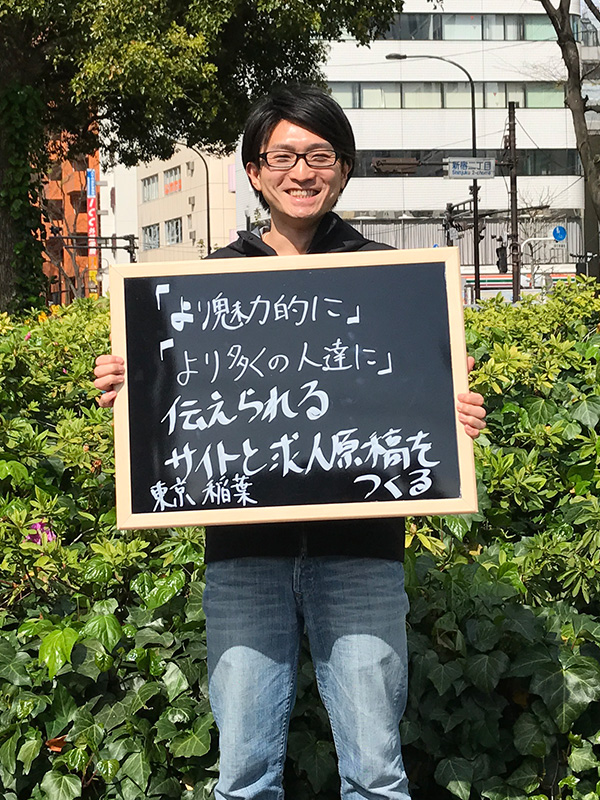 「より魅力的に」
「より多くの人達に」
伝えられる
サイトと求人原稿を
つくる
東京 稲葉
新宿二丁目
Shinjuku 2-chome